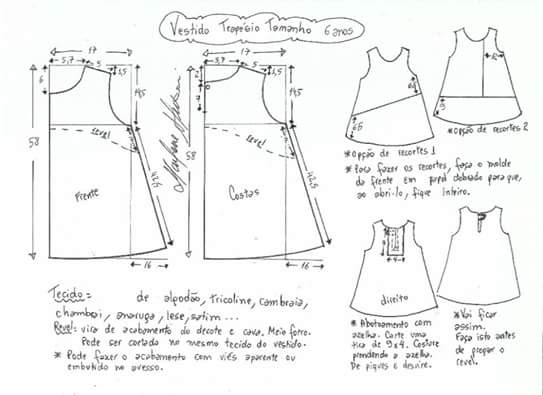 Vestido Trapézio Tamanho 6 anos
17
5,7
5
1,5
6
14,5
58
Revel
Frente
42,5
16
17
5,7
5
1,5
2
7
14,5
58
Revel
Costas
42,5
16
Marlene Mukai
*Opção de recortes 1
*Opção de recortes 2
*Para fazer os recortes, faça o molde
da frente em papel dobrado para que,
ao abri-lo, fique inteiro.
9
4
direito
*Abotoamento com
azelha. Corte uma
tica de 9x4. Costure
prendendo a azelha.
De piques e desvire.
*Vai ficar
assim.
Faça isto antes
de pregar o
revel.
Tecido= de algodão, tricoline, cambraia,
chambri, anarruga, lese, satim ...
Revel= vira de acabamento do decote e cava. Meio forro.
Pode ser cortado no mesmo tecido do vestido.
* Pode fazer o acabamento com viés aparente ou
embutido no avesso.